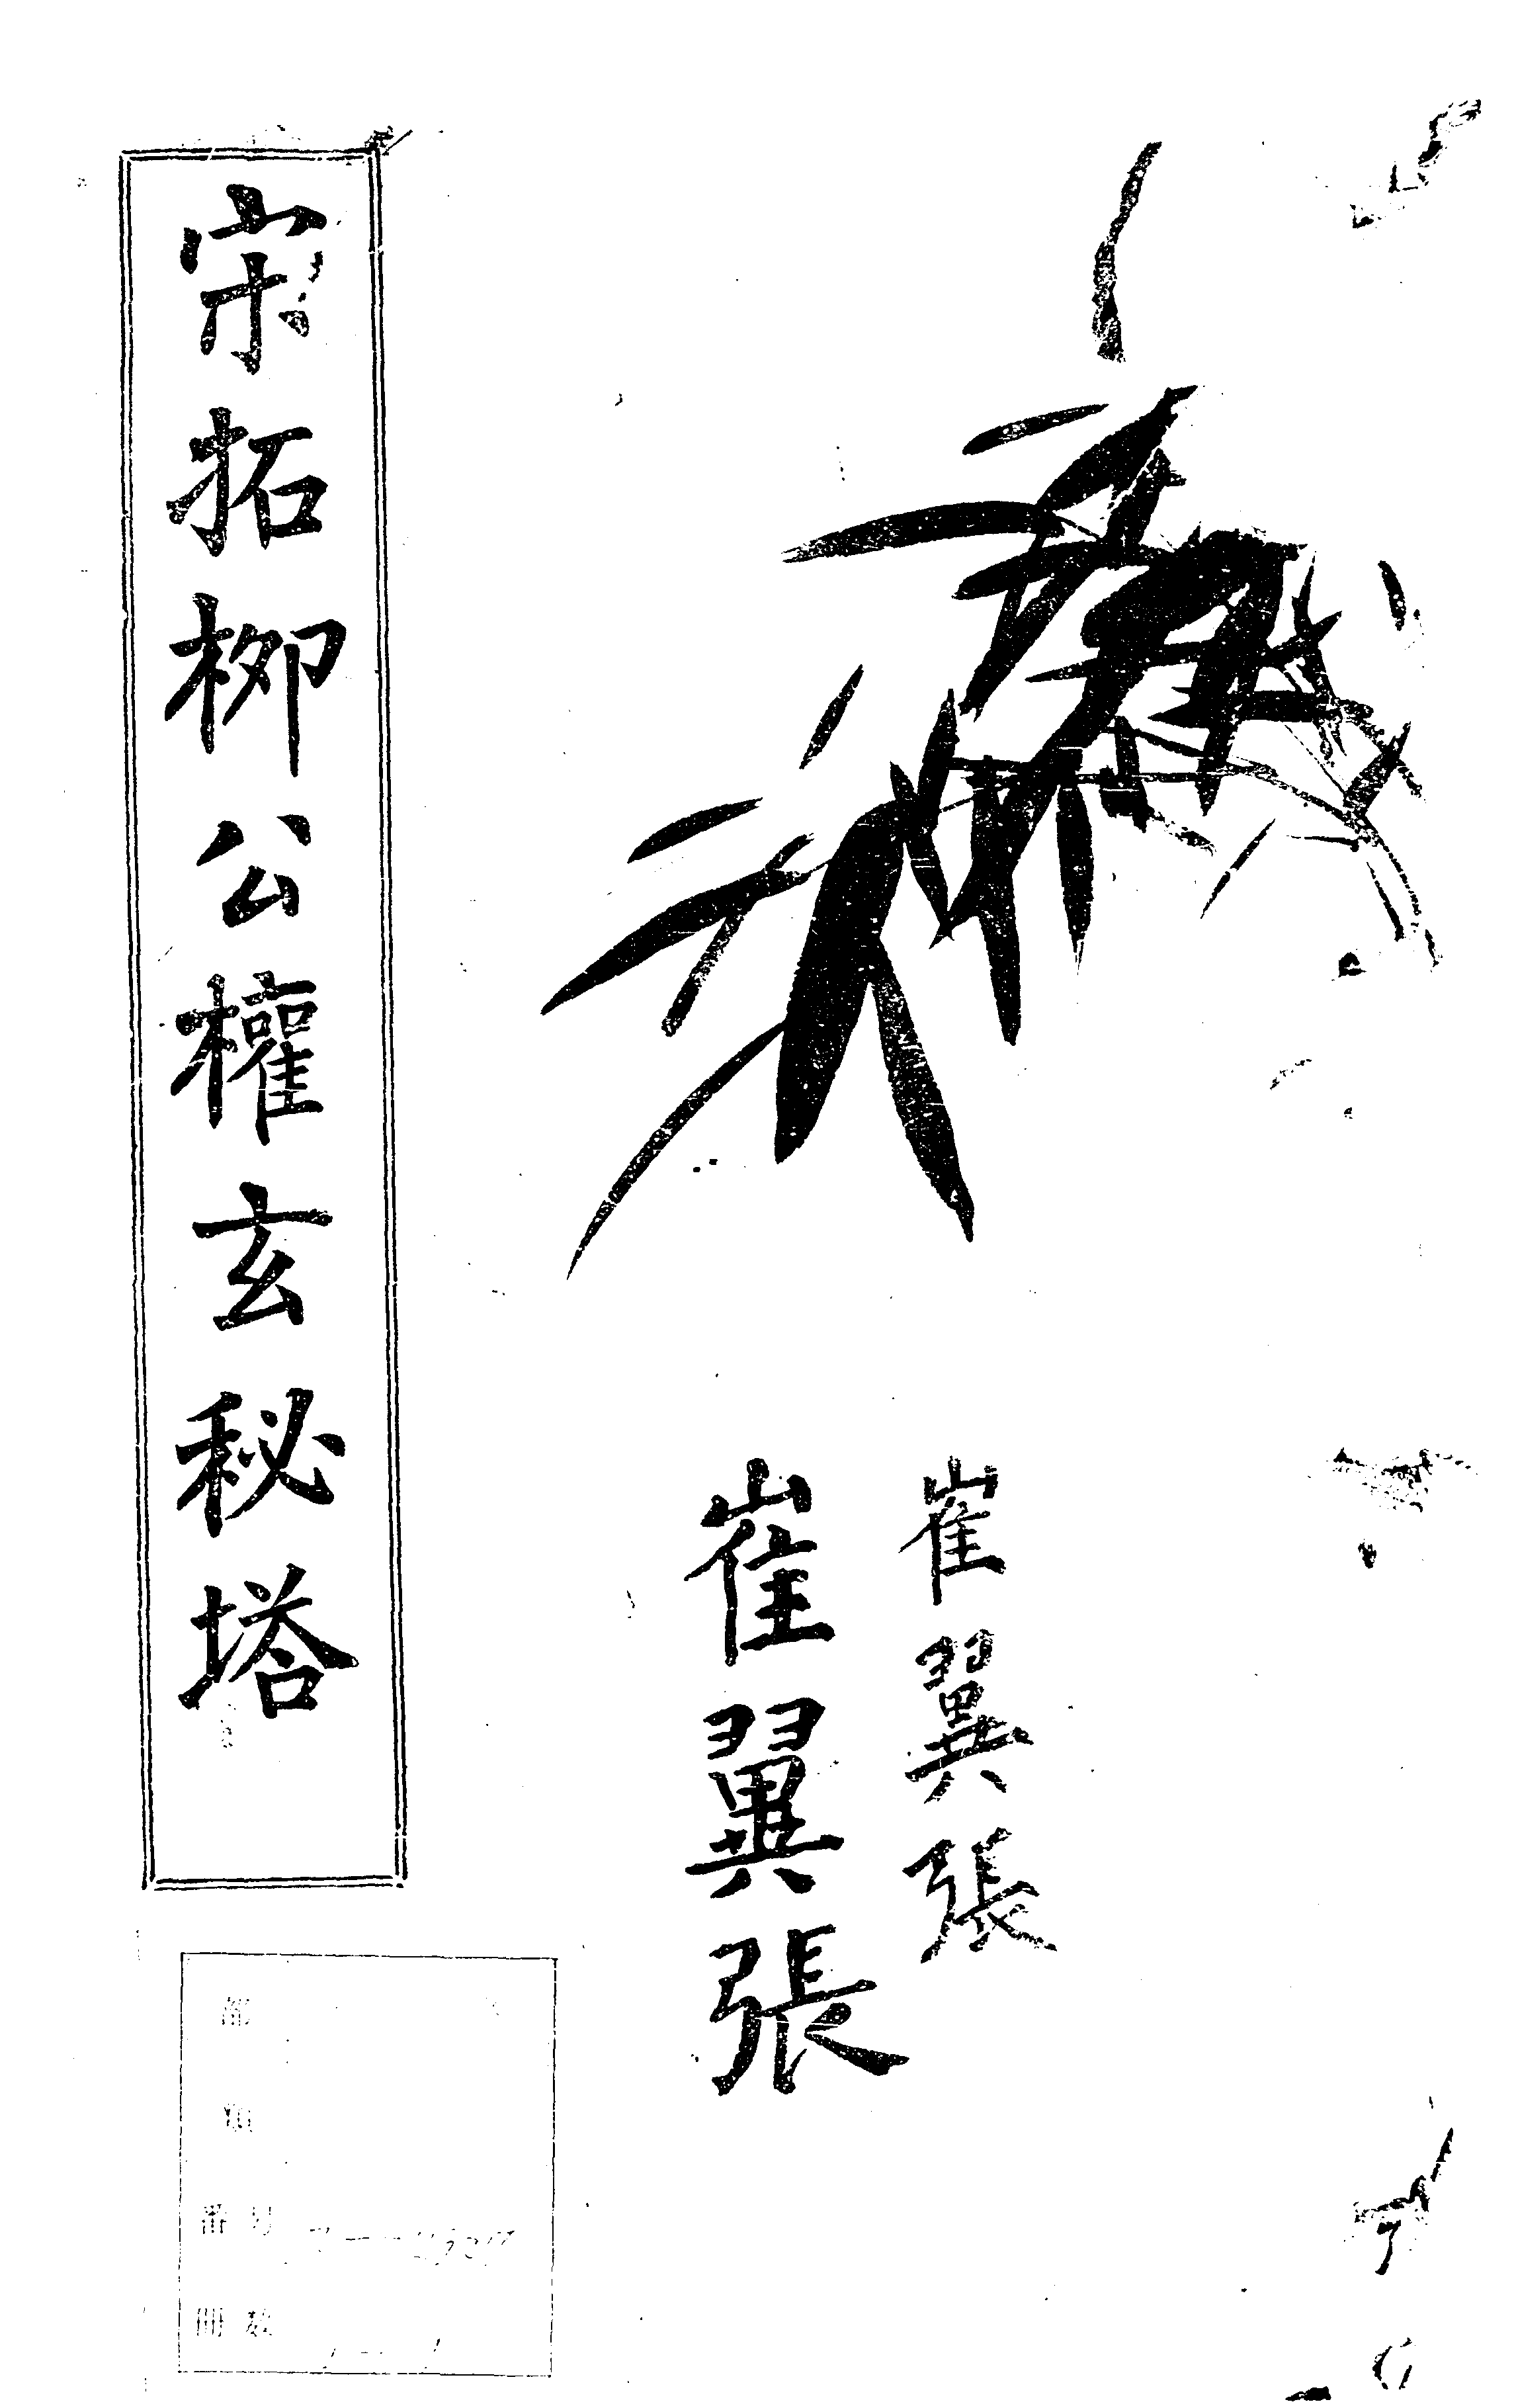 崔翼張
崔翼張
宋拓柳公權玄秘塔
部
類
番号
冊数